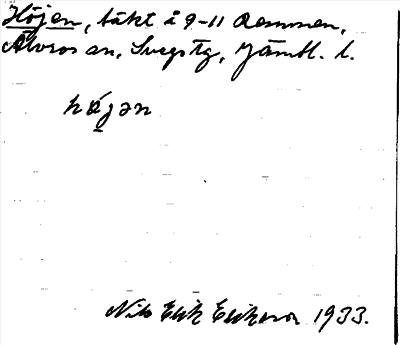 Höjen, täkt å 9-11 Remmen,
Älvros sn, Svegs tg, Jämtl. l.
högən
Nils Erik Eriksson 1933.